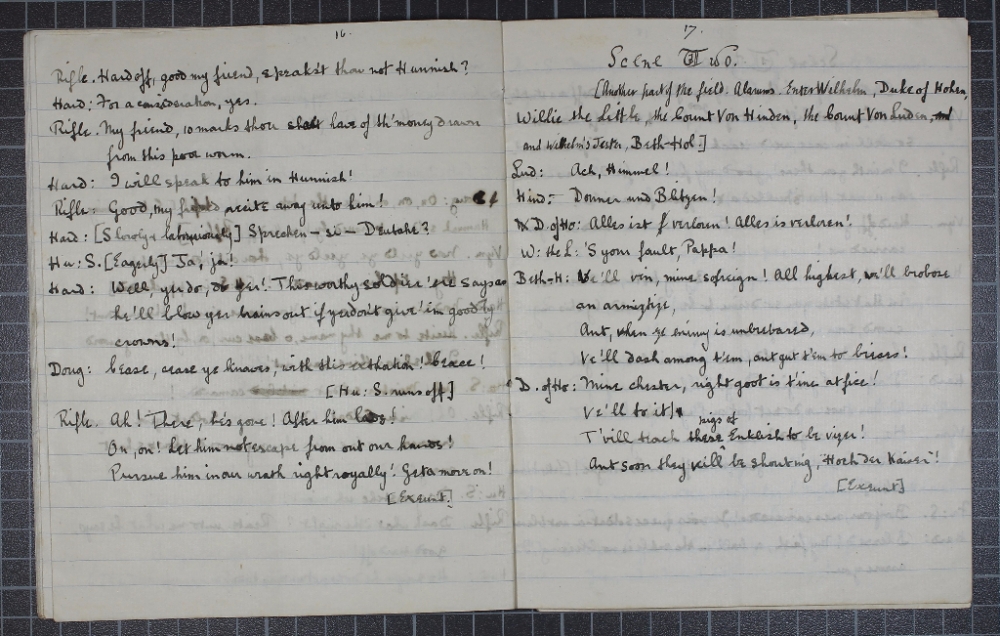 16.
Rifle. Hardoff, good my friend, speak'st thou not Hunnish?
Hard: For a consideration, yes.
Rifle. My friend, 10 marks thou shalt have of th' money drawn
from this poor worm.
Hard: I will speak to him in Hunnish!
Rifle: Good, my friend recite away unto him!
Hard: [Slowly & laboriously] Sprechen – si – Deutshe?
Hu: S. [Eagerly] Ja, ja!
Hard: Well, yer do, do yer! This worthy soldier 'ere says as
he'll blow yer brains out if yer don't give 'im good
crowns!
Doug: Cease, cease ye knaves, with this Cease!
[Hu: S. runs off]
Rifle. Ah! There, he's gone! After him lads!
On, on! Let him not escape from out our hands!
Pursue him in our wrath right royally! Get a move on!
[Exeunt]
17.
Scene Two.
[Another part of the field. Alarums. Enter Wilhelm, Duke of Hohen,
Willie the Little, the Count Von Hinden, the Count Von Luden, and
and Wilhelm's Jester, Beth-Hol.]
Lud: Ach, Himmel!
Hind:- Donner und Blitzen!
D. of Ho: Alles ist verloren! Alles is verloren!
W: the L: 'S your fault, Pappa!
Beth-H: Ve'll vin, mine sofreign! All highest, ve'll brobose
an armistize,
Ant, vhen ze enimy is unbrebared,
Ve'll dash among t'em, ant gut t'em to bieces!
D. of Ho: Mine chester, right goot is t'ine atfice!
Ve'll to it,
T'vill teach these pigs of Enklish to be viser!
Ant soon they vill be shouting, "Hoch der Kaiser"!
[Exeunt]